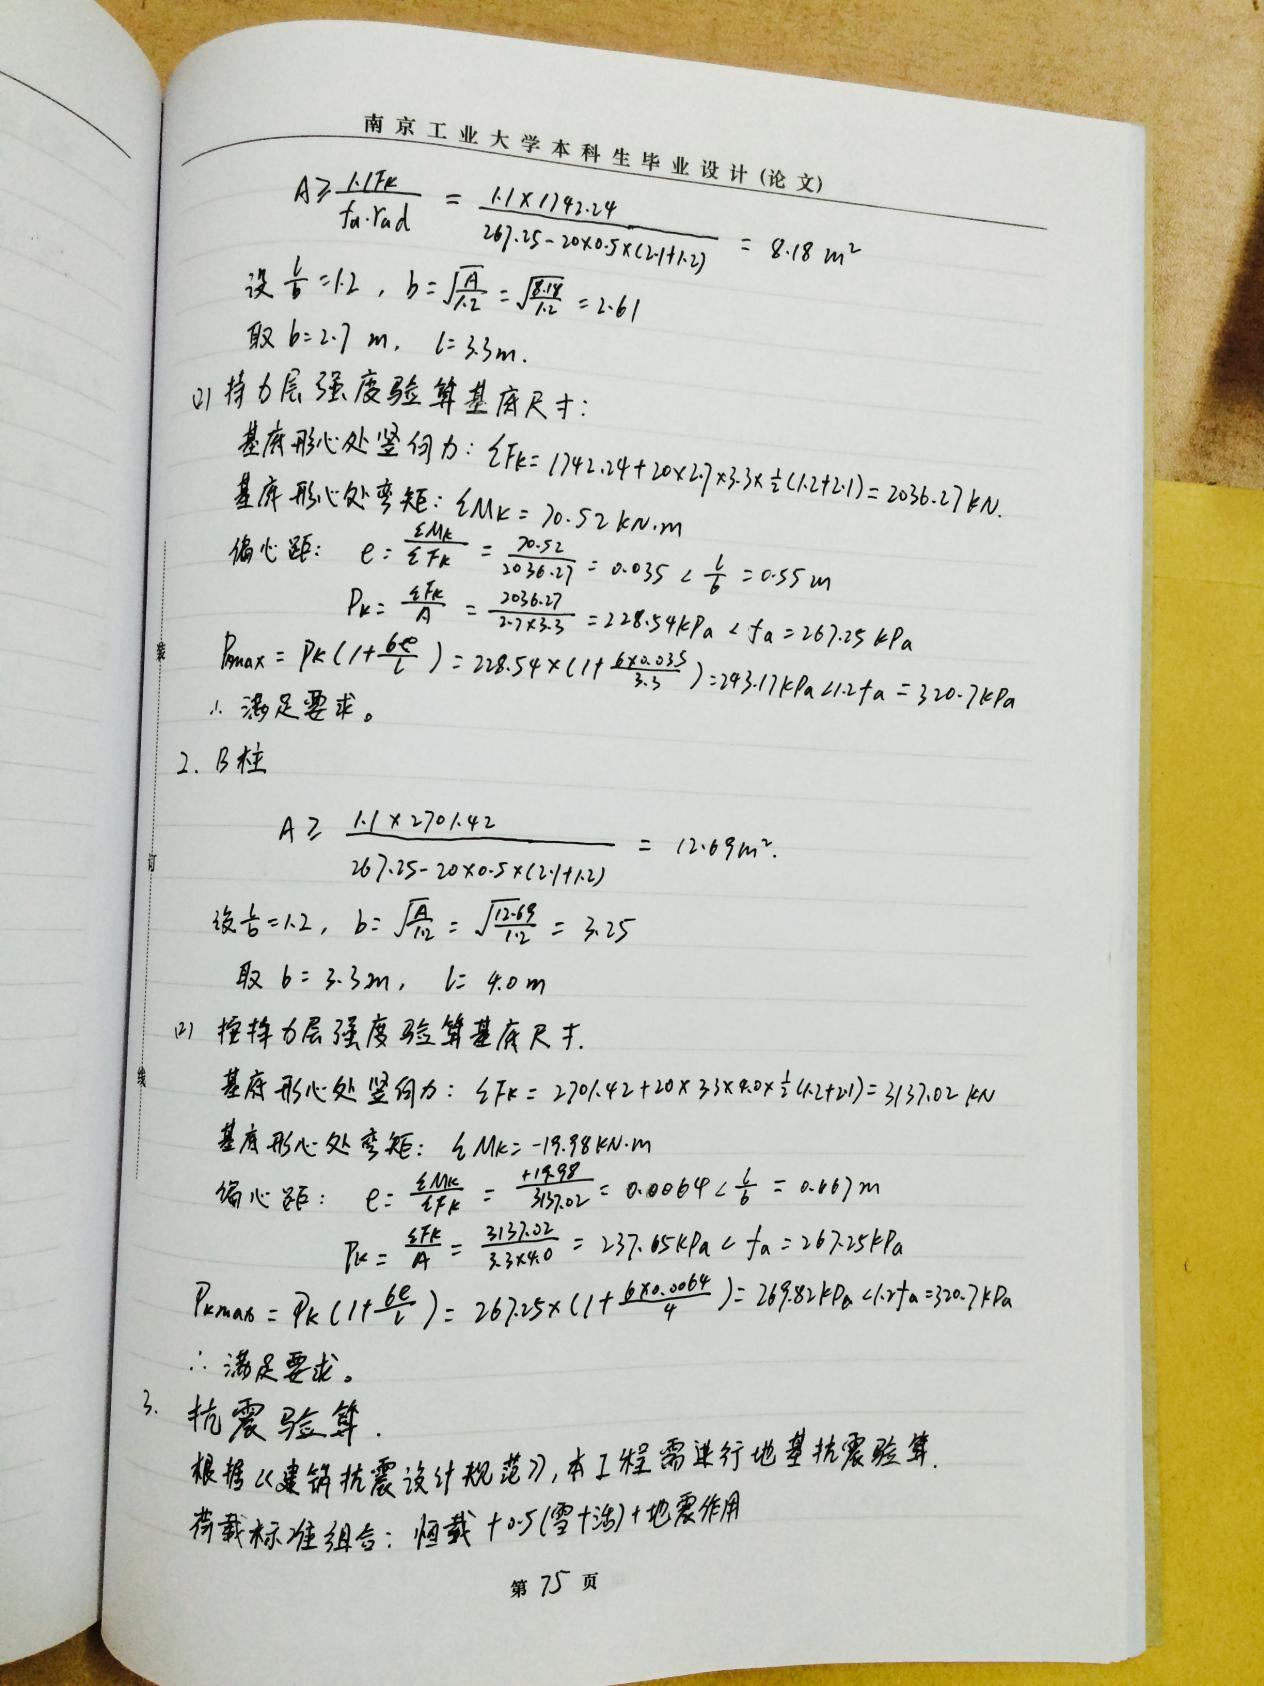 南京工业大学本科生毕业设计(论文)
A≥ 1.1Fk / fa-rad = 1.1×1742.24 / 267.25-20×0.5×(2.1+1.2) = 8.18 m²
设 l/b=1.2, b=√(A/1.2)=√(8.18/1.2)=2.61
取 b=2.7 m, l=3.3m.
(2) 持力层强度验算基底尺寸:
基底形心处竖向力: ΣFk=1742.24+20×2.7×3.3×½(1.2+2.1)=2036.27kN.
基底形心处弯矩: ΣMk=70.52kN·m
偏心距: e=ΣMk/ΣFk=70.52/2036.27=0.035<l/6=0.55m
Pk=ΣFk/A=2036.27/2.7×3.3=228.54kPa<fa=267.25kPa
Pmax=Pk(1+6e/l)=228.54×(1+6×0.035/3.3)=243.17kPa<1.2fa=320.7kPa
∴满足要求。
2. B柱
A≥ 1.1×2701.42 / 267.25-20×0.5×(2.1+1.2) = 12.69m².
设l/b=1.2, b=√(A/1.2)=√(12.69/1.2)=3.25
取 b=3.3m, l=4.0m
(2) 持力层强度验算基底尺寸.
基底形心处竖向力: ΣFk=2701.42+20×3.3×4.0×½(1.2+2.1)=3137.02kN
基底形心处弯矩: ΣMk=-19.98kN·m
偏心距: e=ΣMk/ΣFk=+19.98/3137.02=0.0064<l/6=0.667m
Pk=ΣFk/A=3137.02/3.3×4.0=237.65kPa<fa=267.25kPa
Pkmax=Pk(1+6e/l)=267.25×(1+6×0.0064/4)=269.82kPa<1.2fa=320.7kPa
∴满足要求。
3. 抗震验算.
根据《建筑抗震设计规范》,本工程需进行地基抗震验算.
荷载标准组合: 恒载+0.5(雪+活)+地震作用
第 75 页
装
订
线